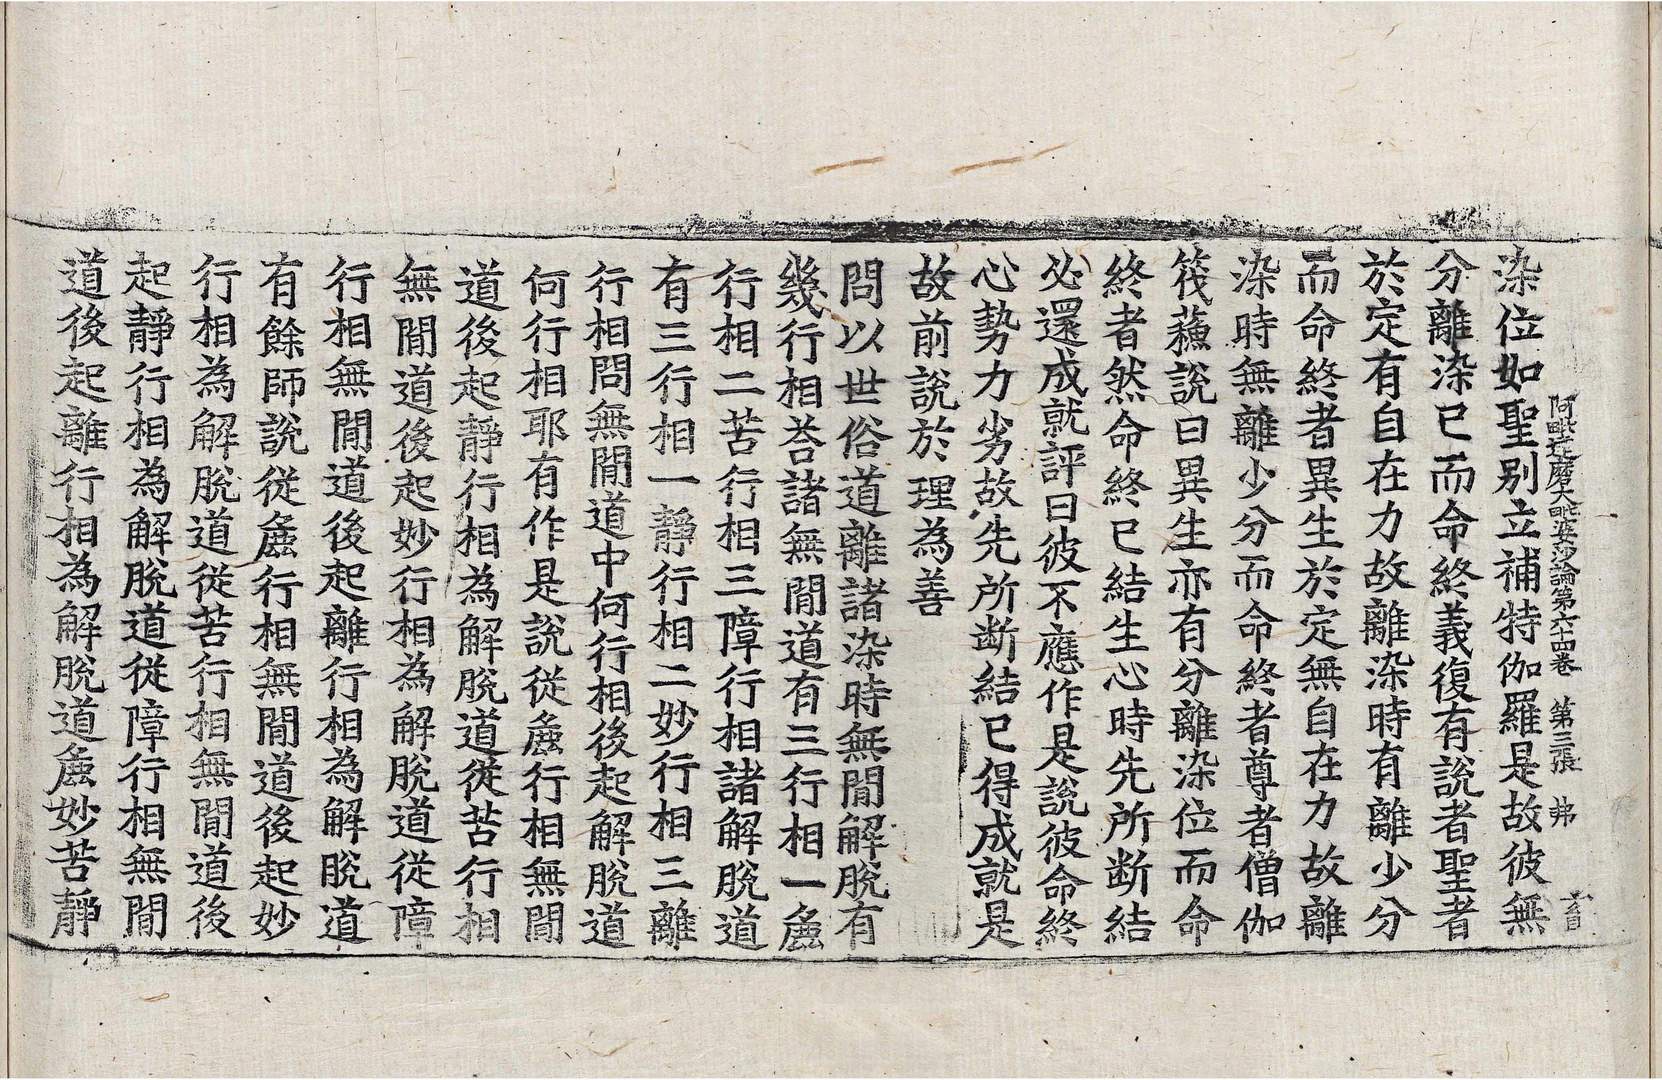 阿毗達磨大毗婆沙論第六十四卷　第三張　弗
染位如聖別立補特伽羅是故彼無
分離染已而命終義復有說者聖者
於定有自在力故離染時有離少分
而命終者異生於定無自在力故離
染時無離少分而命終者尊者僧伽
筏蘓說曰異生亦有分離染位而命
終者然命終已結生心時先所断結
必還成就評曰彼不應作是說彼命終
心勢力劣故先所断結已得成就是
故前說於理為善
問以世俗道離諸染時無閒解脫有
幾行相荅諸無閒道有三行相一麁
行相二苦行相三障行相諸解脫道
有三行相一靜行相二妙行相三離
行相問無閒道中何行相後起解脫道
何行相耶有作是說從麁行相無閒
道後起靜行相為解脫道從苦行相
無閒道後起妙行相為解脫道從障
行相無閒道後起離行相為解脫道
有餘師說從麁行相無閒道後起妙
行相為解脫道從苦行相無閒道後
起靜行相為解脫道從障行相無閒
道後起離行相為解脫道麁妙苦靜